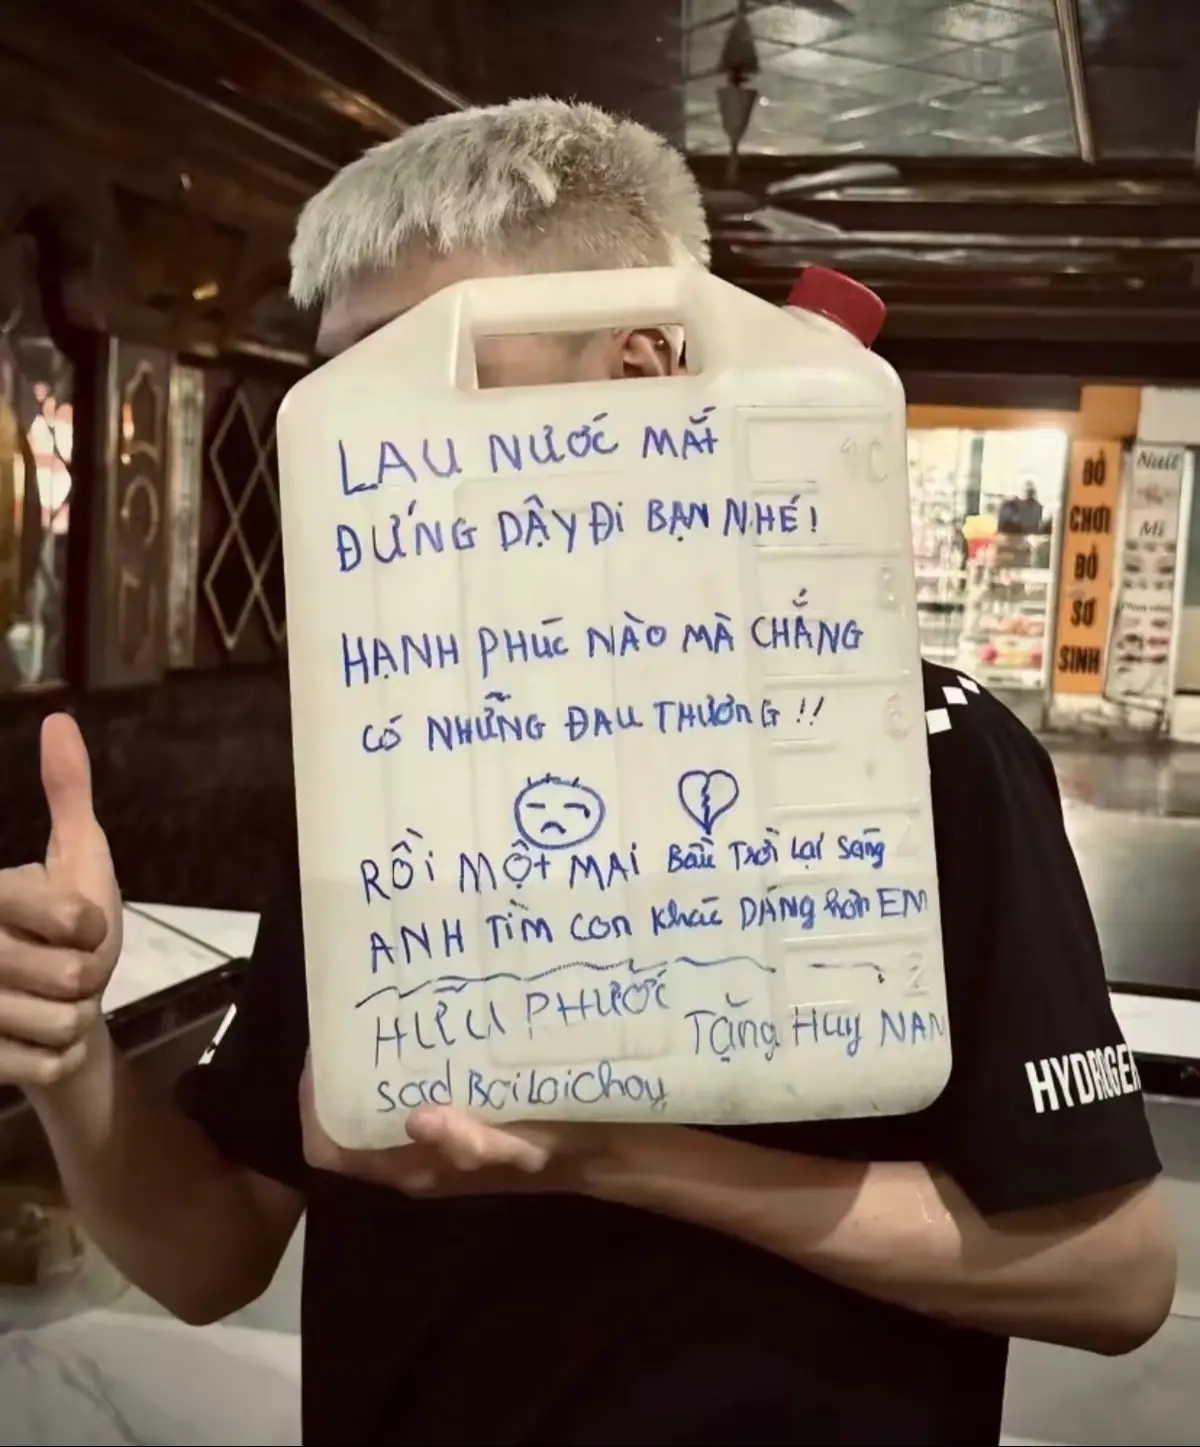 LAU NƯỚC MẮT
ĐỨNG DẬY ĐI BẠN NHÉ!
HẠNH PHÚC NÀO MÀ CHẲNG
CÓ NHỮNG ĐAU THƯƠNG!!
RỒI MỘT MAI BẦU TRỜI LẠI SÁNG
ANH TÌM CON KHÁC DÁNG HƠN EM
HỮU PHƯỚC
TẶNG HUY NAM
sad BoiLoiChoy
10
8
6
2
HYDROGEN
ĐỒ
CHƠI
ĐỒ
SƠ
SINH
Nail
Mi